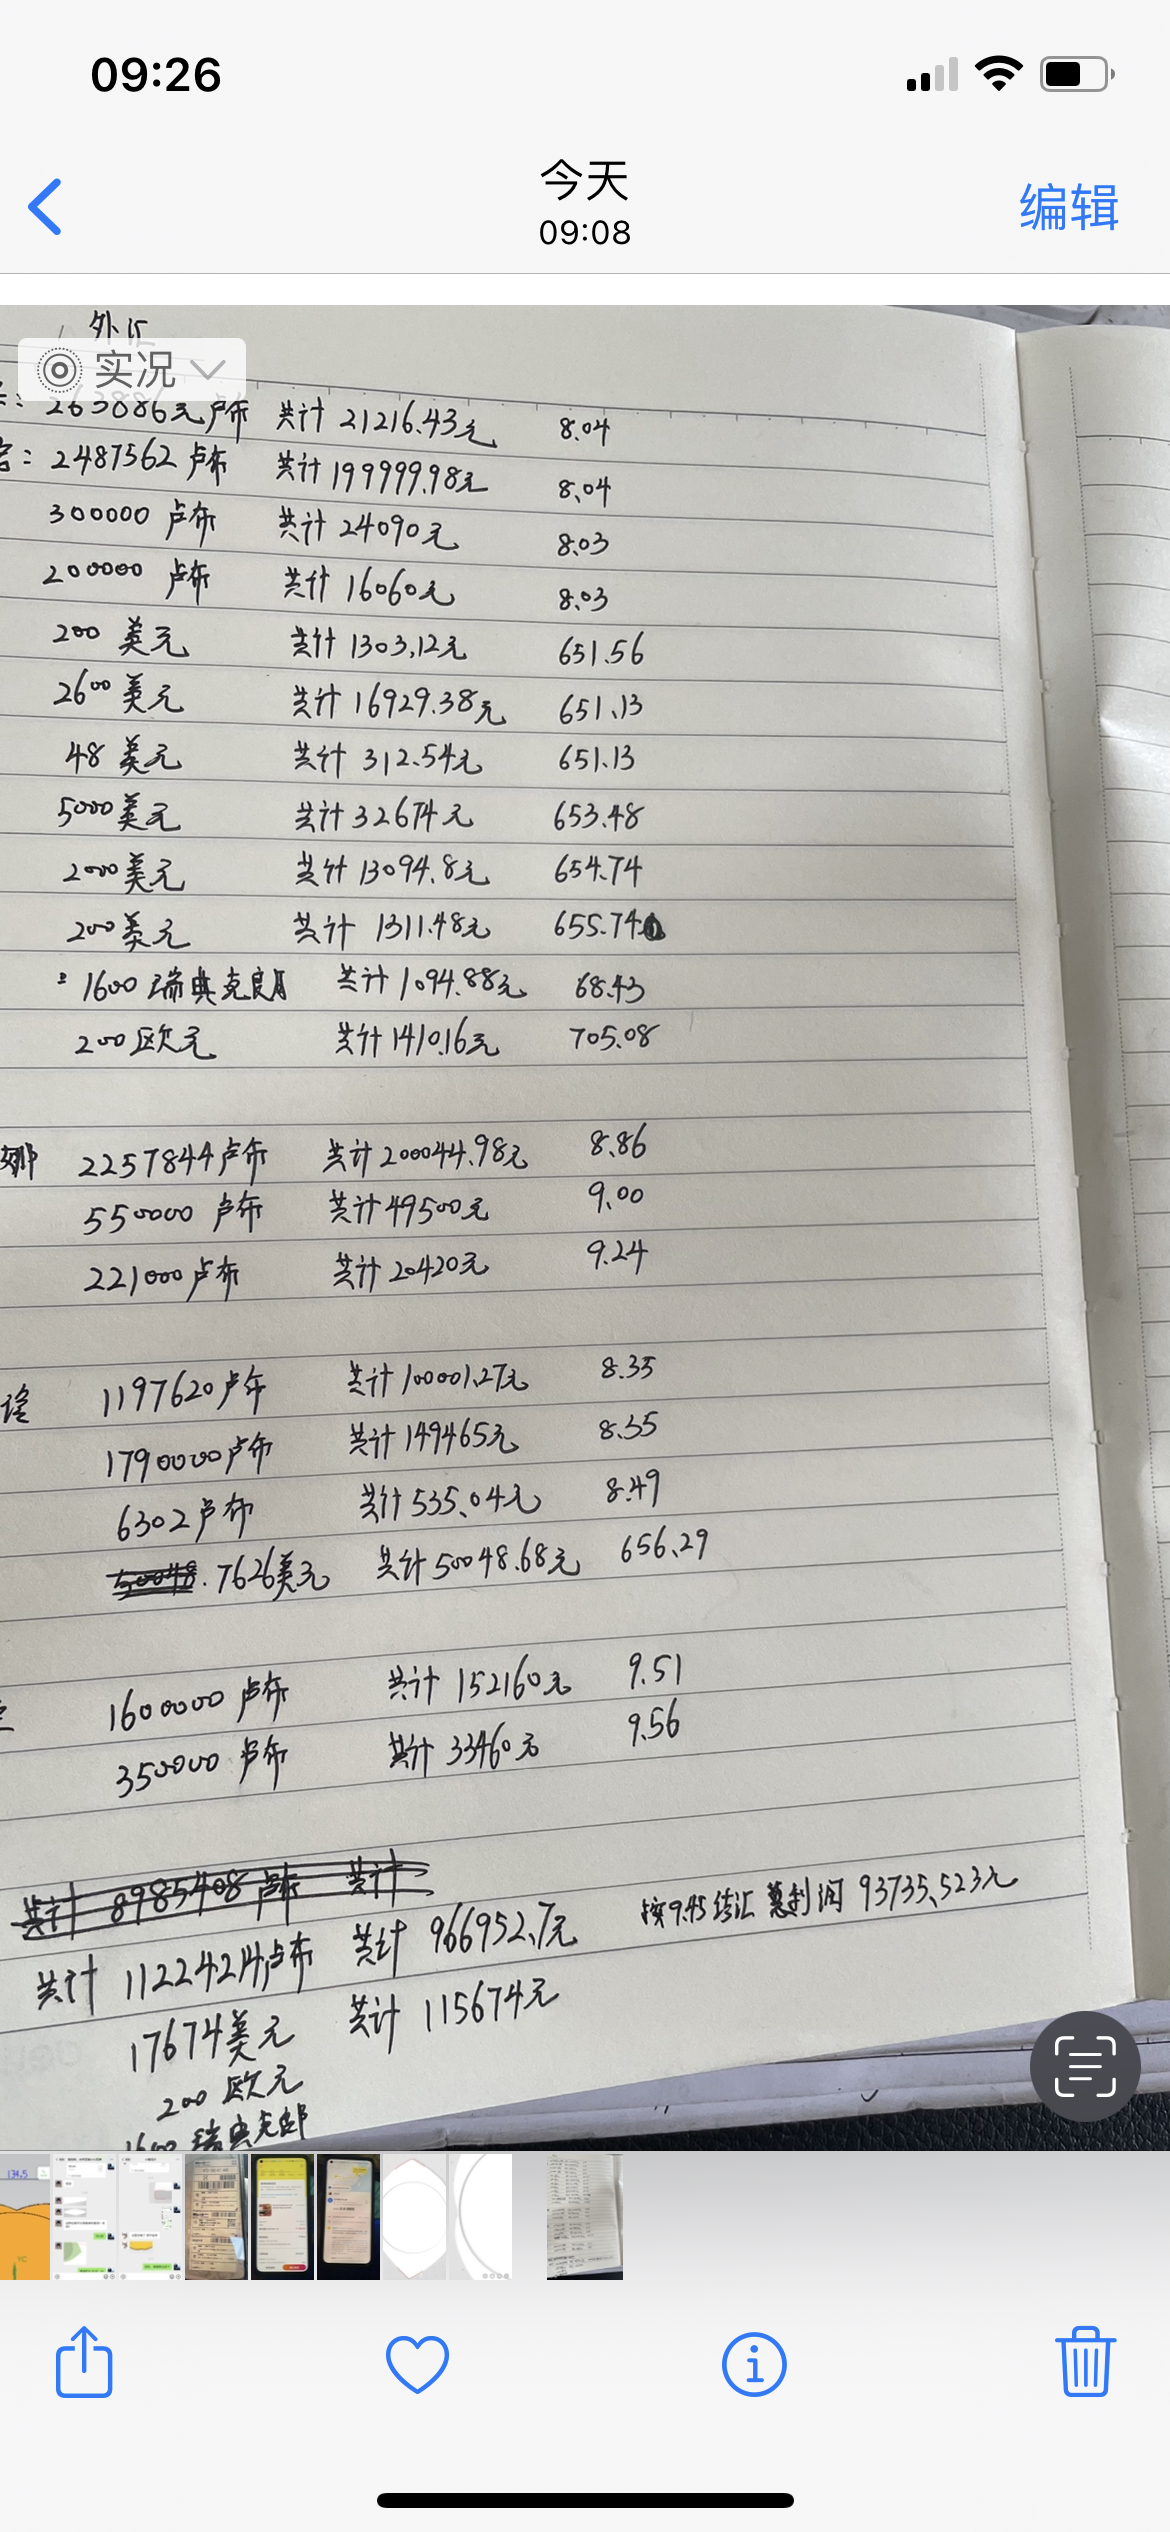 09:26
今天
09:08
编辑
外汇
实况
263886元卢布 共计 21216.43元 8.04
2487562 卢布 共计 199999.98元 8.04
300000 卢布 共计 24090元 8.03
200000 卢布 共计 16060元 8.03
200 美元 共计 1303.12元 651.56
2600 美元 共计 16929.38元 651.13
48 美元 共计 312.54元 651.13
5000美元 共计 32674元 653.48
2000美元 共计 13094.8元 654.74
200美元 共计 1311.48元 655.74
1600 瑞典克朗 共计 1094.88元 68.43
200欧元 共计 1410.16元 705.08
娜 2257844卢布 共计 200044.98元 8.86
550000 卢布 共计 49500元 9.00
221000卢布 共计 20420元 9.24
1197620卢布 共计 100001.27元 8.35
1790000卢布 共计 149465元 8.35
6302卢布 共计 535.04元 8.49
50048. 7626美元 共计 50048.68元 656.29
1600000 卢布 共计 152160元 9.51
350000 卢布 共计 33460元 9.56
共计 8985408 卢布 共计
共计 11224214卢布 共计 966952.7元 按9.45结汇 总利润 93735.523元
17674美元 共计 115674元
200 欧元
1600 瑞典克郎